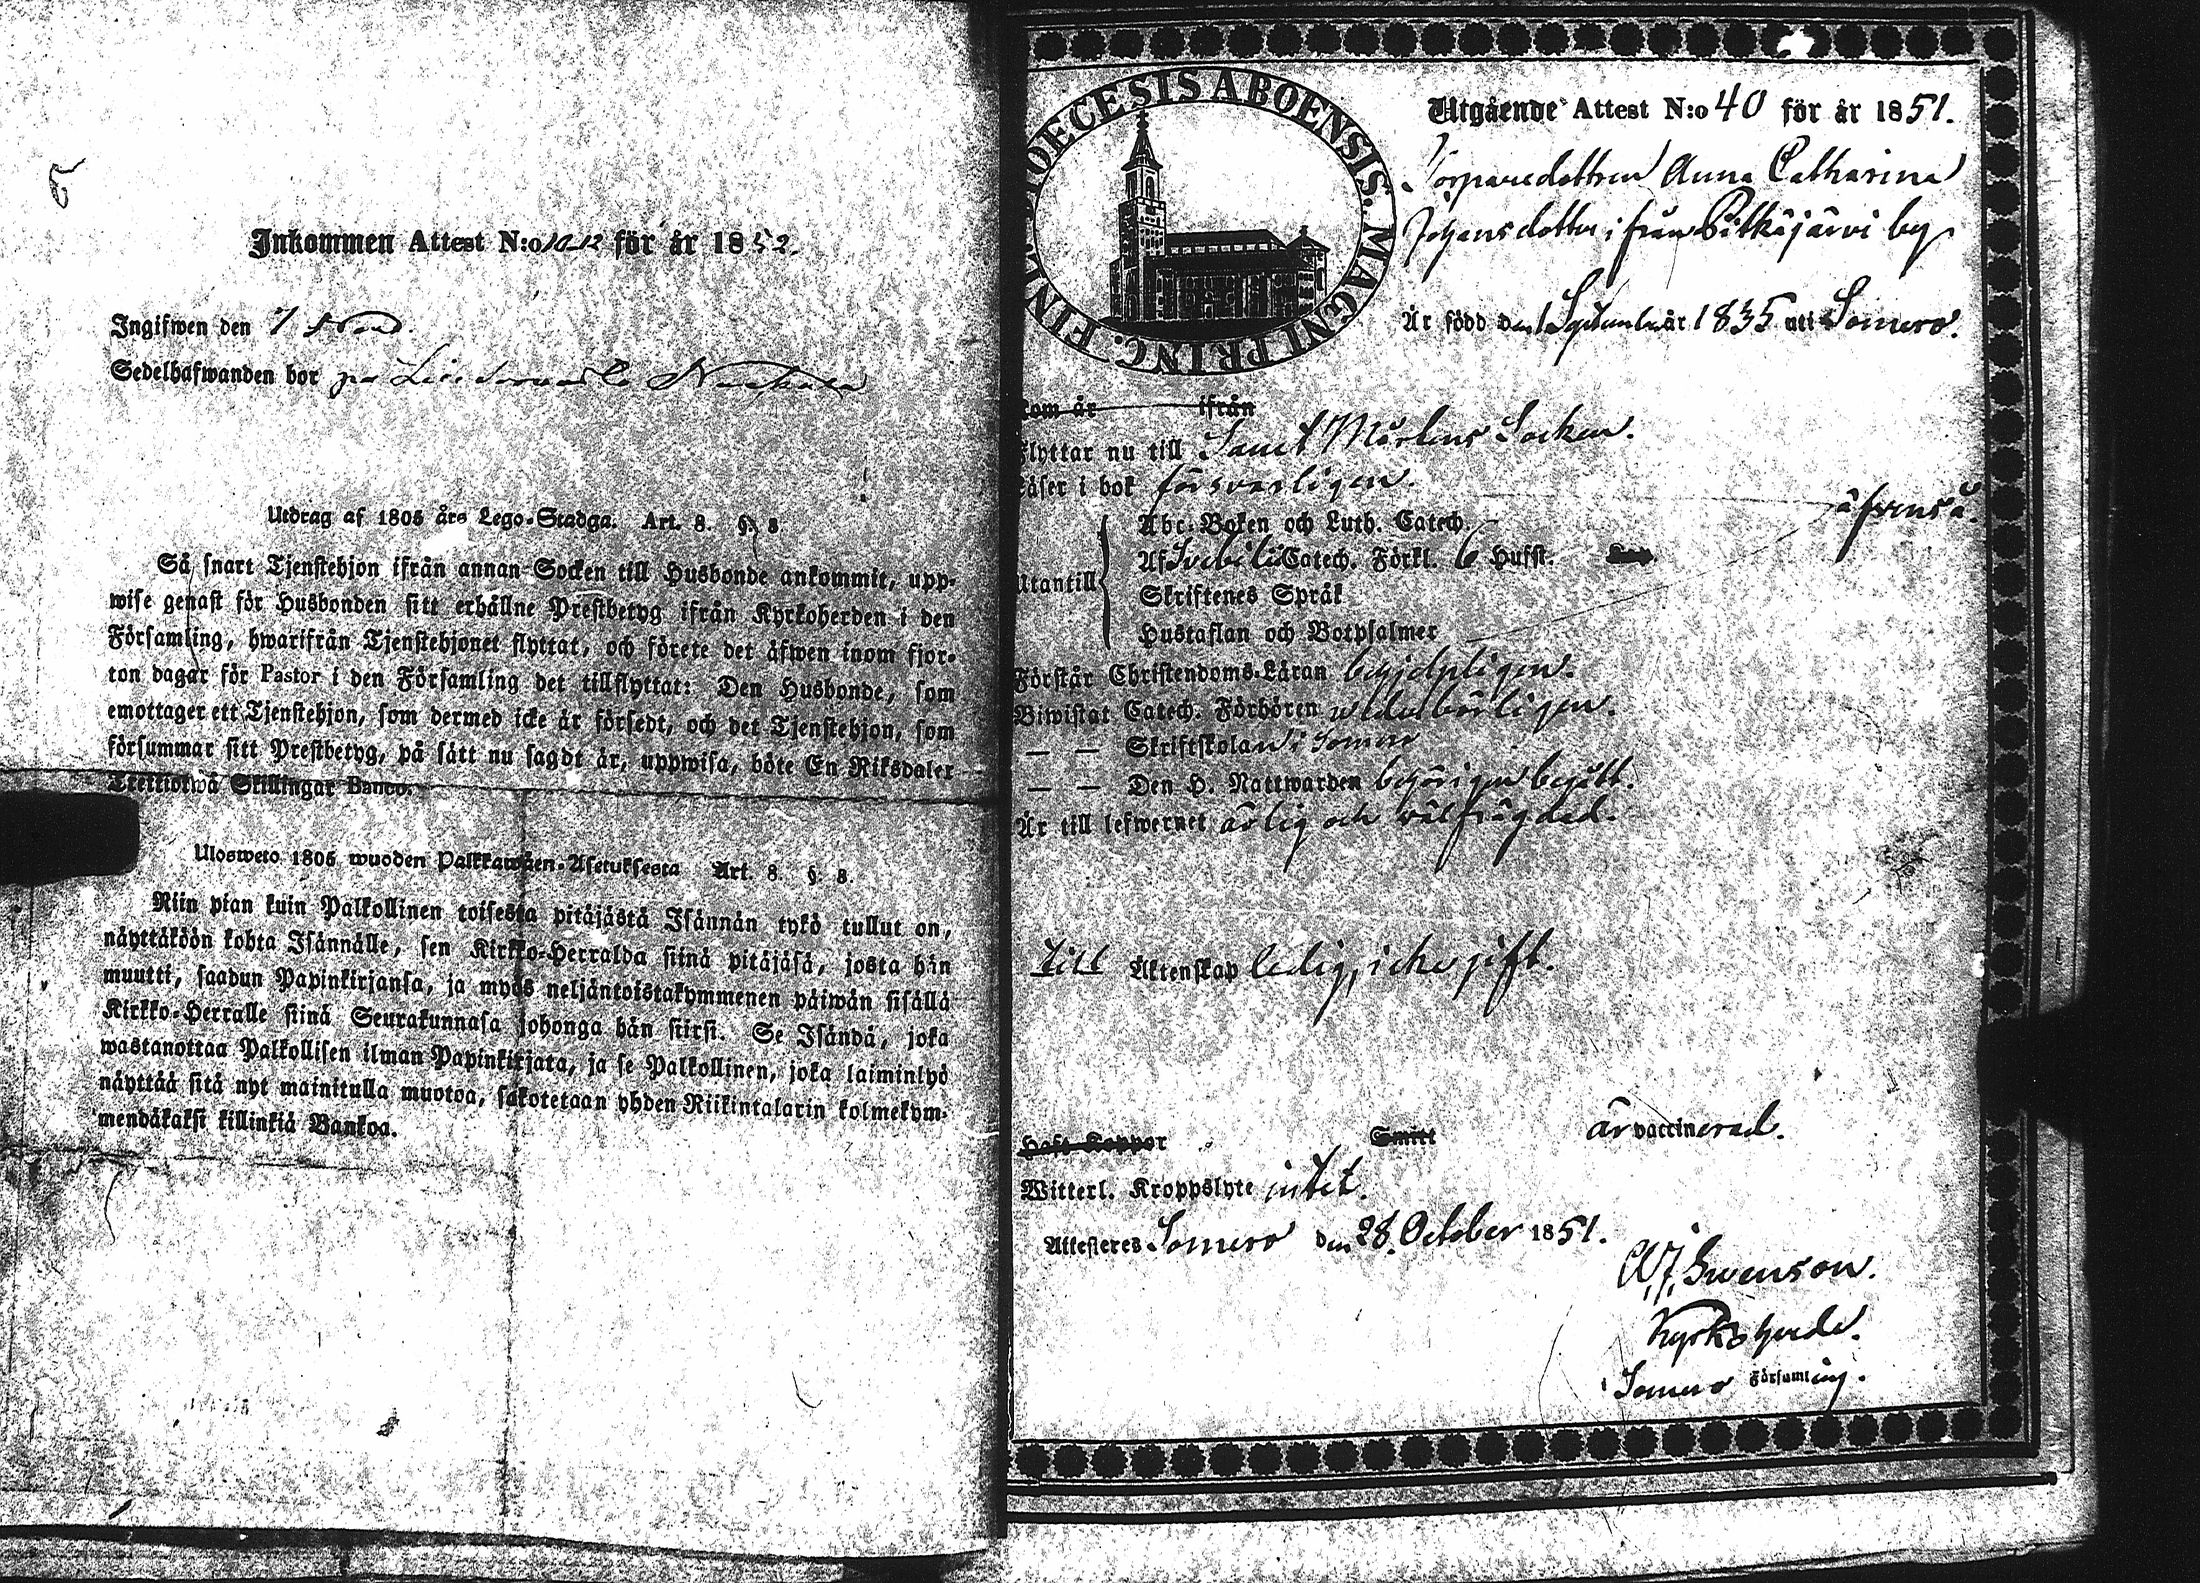 Inkommen Attest N:o 10 12 för år 1852.
Ingifwen den 7 Nov.
Sedelhafwanden bor på
Utdrag af 1805 års Lego-Stadga. Art. 8. §. 8.
Så snart Tjenstehjon ifrån annan Socken till Husbonde ankommit, upp-
wise genast för Husbonden sitt erhållne Prestbetyg ifrån Kyrkoherden i den
Församling, hwarifrån Tjenstehjonet flyttat, och förete det äfwen inom fjor-
ton dagar för Pastor i den Församling det tillflyttat: Den Husbonde, som
emottager ett Tjenstehjon, som dermed icke är försedt, och det Tjenstehjon, som
försummar sitt Prestbetyg, på sätt nu sagdt är, uppwisa, böte En Riksdaler
Trettiotwå Skillingar Banco.
Ulosweto 1805 wuoden Palkkawäen-Asetuksesta Art. 8. §. 8.
Niin pian kuin Palkollinen toisesta pitäjästä Isännän tykö tullut on,
näyttäköön kohta Isännälle, sen Kirkko-Herralda siinä pitäjäsä, josta hän
muutti, saadun Papinkirjansa, ja myös neljäntoistakymmenen päiwän sisällä
Kirkko-Herralle siinä Seurakunnasa johonga hän siirsi. Se Isändä, joka
wastanottaa Palkollisen ilman Papinkirjata, ja se Palkollinen, joka laiminlyö
näyttää sitä nyt mainitulla muotoa, sakotetaan yhden Riikintalarin kolmekym-
mendäkaksi killinkiä Bankoa.
DIOECESIS ABOENSIS. MAGNI PRINC. FINL.
Utgående Attest N:o 40 för år 1851.
Torparedottren Anna Catharina
Johansdotter ifrån Pitkäjärvi by
Är född den 1 September år 1835 uti Somero.
kom år ifrån
Flyttar nu till Sanct Mårtens Socken.
Läser i bok försvarligen.
Abc-Boken och Luth. Catech. äfvenså.
Af Svebilii Catech. Förkl. 6 Hufst.
Utantill
Skriftenes Språk
Hustaflan och Botpsalmer
Förstår Christendoms-Läran begripligen.
Biwistat Catech. Förhören vederbörligen.
— — Skriftskolan i Somero
— — Den H. Nattwarden behörigen begått.
Är till lefwernet ärlig och välfrägdad.
Till Äktenskap ledig, icke gift.
Haft Koppor Smitt är vaccinerad.
Witterl. Kroppslyte intet.
Attesteres Somero den 28 October 1851.
Swenson.
Kyrkoherde.
i Somero Församling.